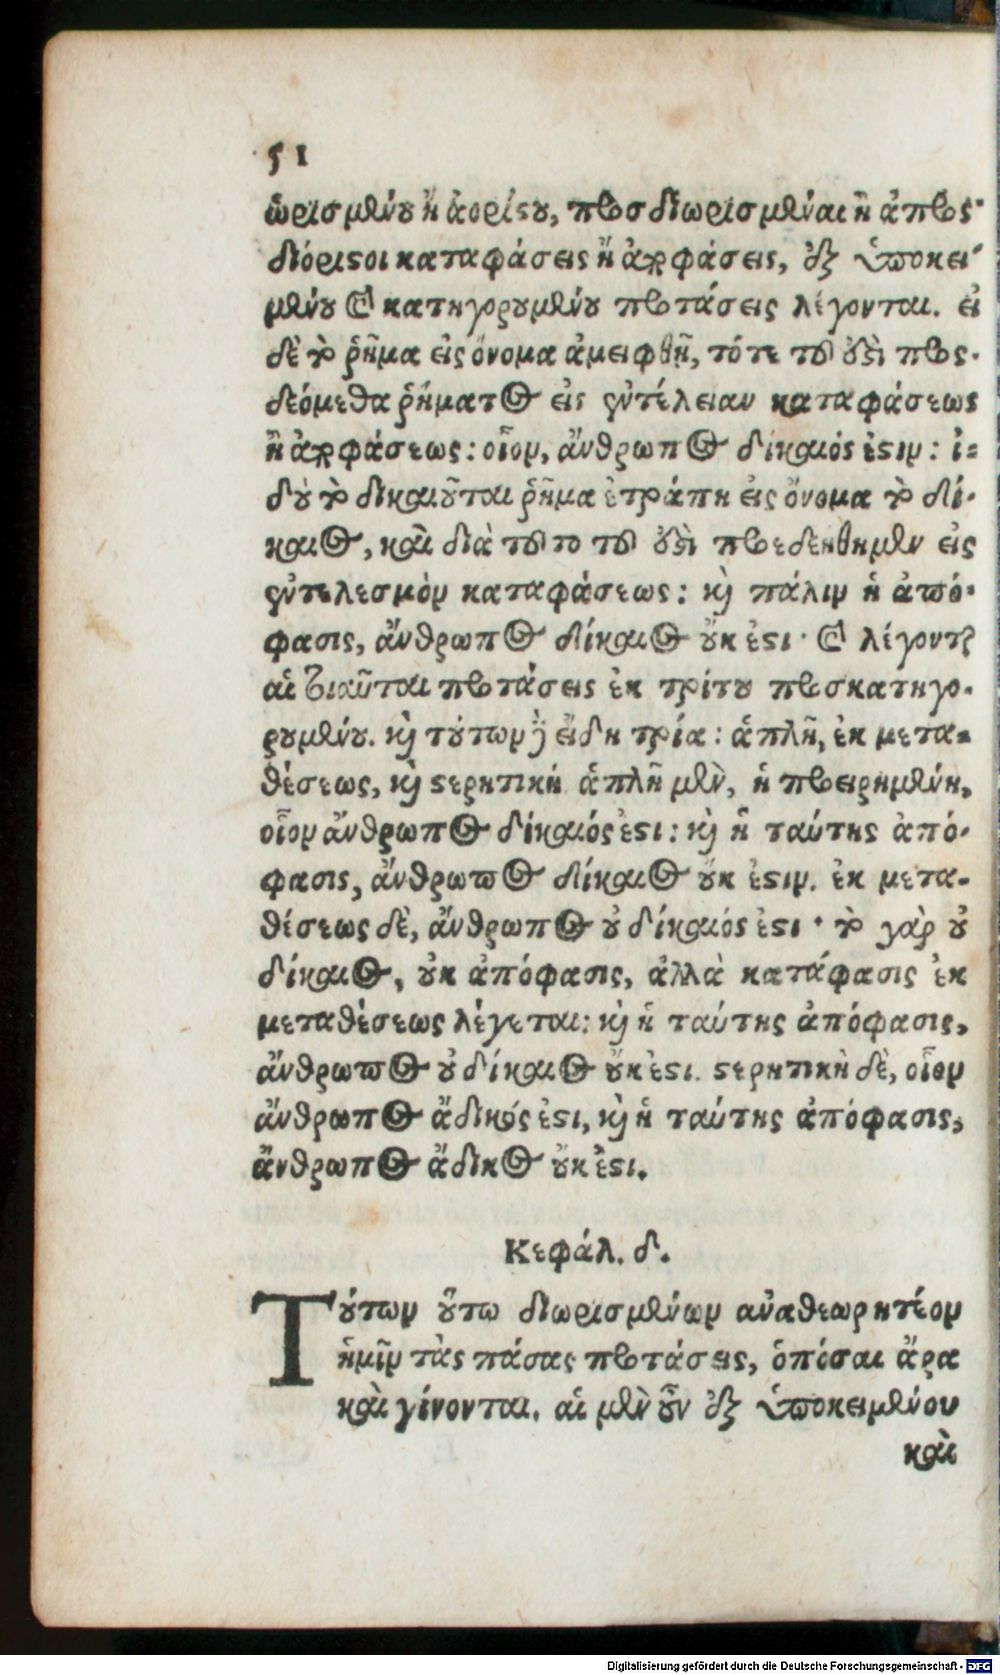 51
ὡρισμένου ἢ ἀορίστου, προσδιωρισμέναι ἢ ἀπρος-
διόριστοι καταφάσεις ἢ ἀποφάσεις, ἐξ ὑποκει-
μένου καὶ κατηγορουμένου προτάσεις λέγονται. εἰ
δὲ τὸ ῥῆμα εἰς ὄνομα ἀμειφθῇ, τότε τοῦ ἐστὶ προς-
δεόμεθα ῥήματος εἰς συντέλειαν καταφάσεως
ἢ ἀποφάσεως: οἷον, ἄνθρωπος δίκαιός ἐστιν: ἰ-
δοὺ τὸ δικαιοῦται ῥῆμα ἐτράπη εἰς ὄνομα τὸ δί-
καιος, καὶ διὰ τοῦτο τοῦ ἐστὶ προεδεήθημεν εἰς
συντελεσμὸν καταφάσεως: καὶ πάλιν ἡ ἀπό-
φασις, ἄνθρωπος δίκαιος οὔκ ἐστι· καὶ λέγονται
αἱ τοιαῦται προτάσεις ἐκ τρίτου προσκατηγο-
ρουμένου. καὶ τούτων δὲ εἴδη τρία: ἁπλῆ, ἐκ μετα-
θέσεως, καὶ στερητική ἁπλῆ μὲν, ἡ προειρημένη,
οἷον ἄνθρωπος δίκαιός ἐστι: καὶ ἡ ταύτης ἀπό-
φασις, ἄνθρωπος δίκαιος οὔκ ἐστιν. ἐκ μετα-
θέσεως δὲ, ἄνθρωπος οὐ δίκαιός ἐστι· τὸ γὰρ οὐ
δίκαιος, οὐκ ἀπόφασις, ἀλλὰ κατάφασις ἐκ
μεταθέσεως λέγεται: καὶ ἡ ταύτης ἀπόφασις,
ἄνθρωπος οὐ δίκαιος οὔκ ἐστι. στερητικὴ δὲ, οἷον
ἄνθρωπος ἄδικός ἐστι, καὶ ἡ ταύτης ἀπόφασις,
ἄνθρωπος ἄδικος οὔκ ἐστι.
Κεφάλ. δ.
Τούτων οὕτω διωρισμένων ἀναθεωρητέον
ἡμῖν τὰς πάσας προτάσεις, ὁπόσαι ἄρα
καὶ γίνονται. αἱ μὲν οὖν ἐξ ὑποκειμένου
καὶ
Digitalisierung gefördert durch die Deutsche Forschungsgemeinschaft - DFG